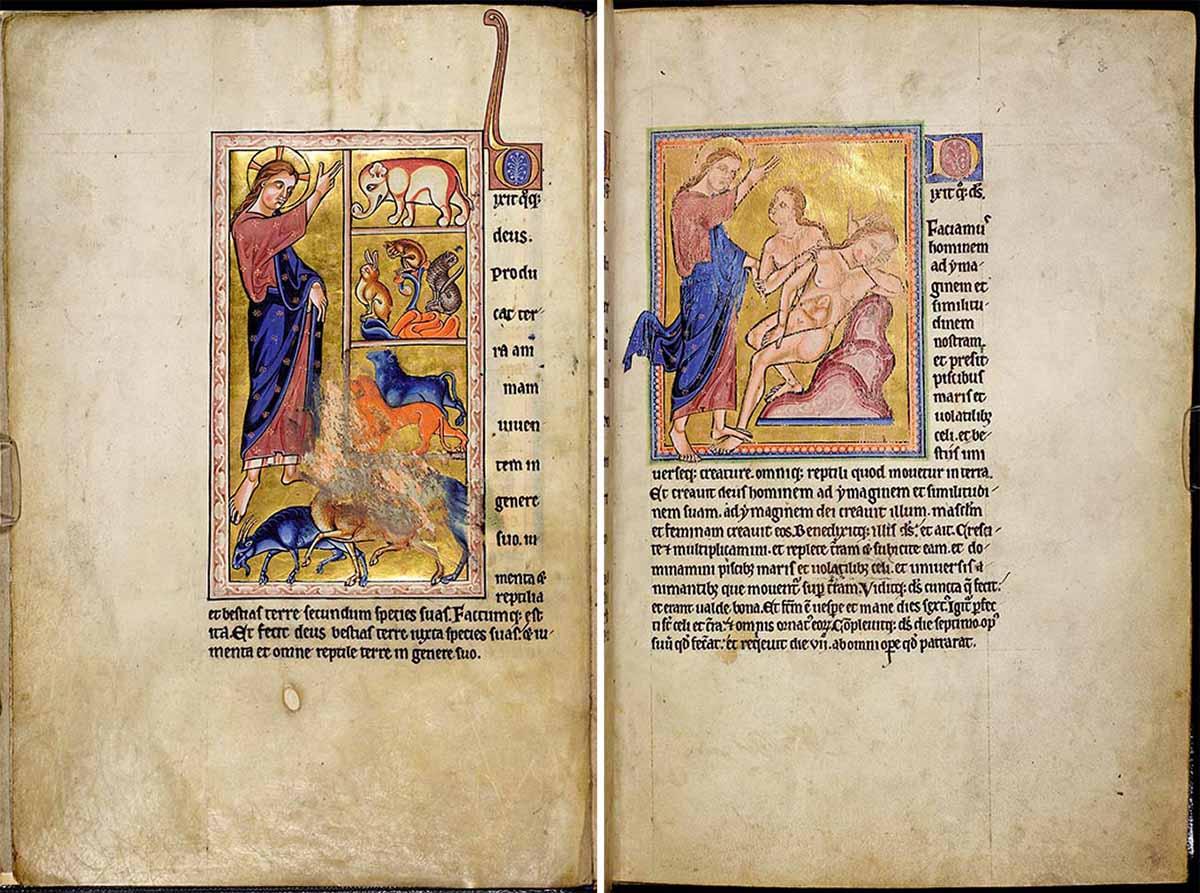 Dixit q̄q̄
deus.
Produ
cat ter-
ra am
mam
uiuen
tem in
genere
suo. iu
menta &
reptilia
et bestias terre secundum species suas. Factumq; est
ita. Et fecit deus bestias terre iuxta species suas. & iu-
menta et omne reptile terre in genere suo.
Dixit q; ds.
Faciamus
hominem
ad yma-
ginem et
similitu-
dinem
nostram.
et presit
piscibus
maris et
uolatilib;
celi. et be-
stiis uni
uerseq; creature. omniq; reptili quod mouetur in terra.
Et creauit deus hominem ad ymaginem et similitudi-
nem suam. ad ymaginem dei creauit illum. masclm
et feminam creauit eos. Benedyxitq; illis ds. et ait. Cresci-
te & multiplicamini. et replete tram & subicite eam. et do-
minamini piscibus maris et uolatilibus celi. et uniuersis a-
nimantib; que mouent sup tram. Viditq; ds cuncta q fecit.
et erant ualde bona. Et fcm e uespe et mane dies sext. Igit pfec
ti st celi et tra. & omnis ornat eor. Cōpleuitq; ds die septimo op
suū qd fecat. et reqeuit die vii. ab omni ope qd patrarat.